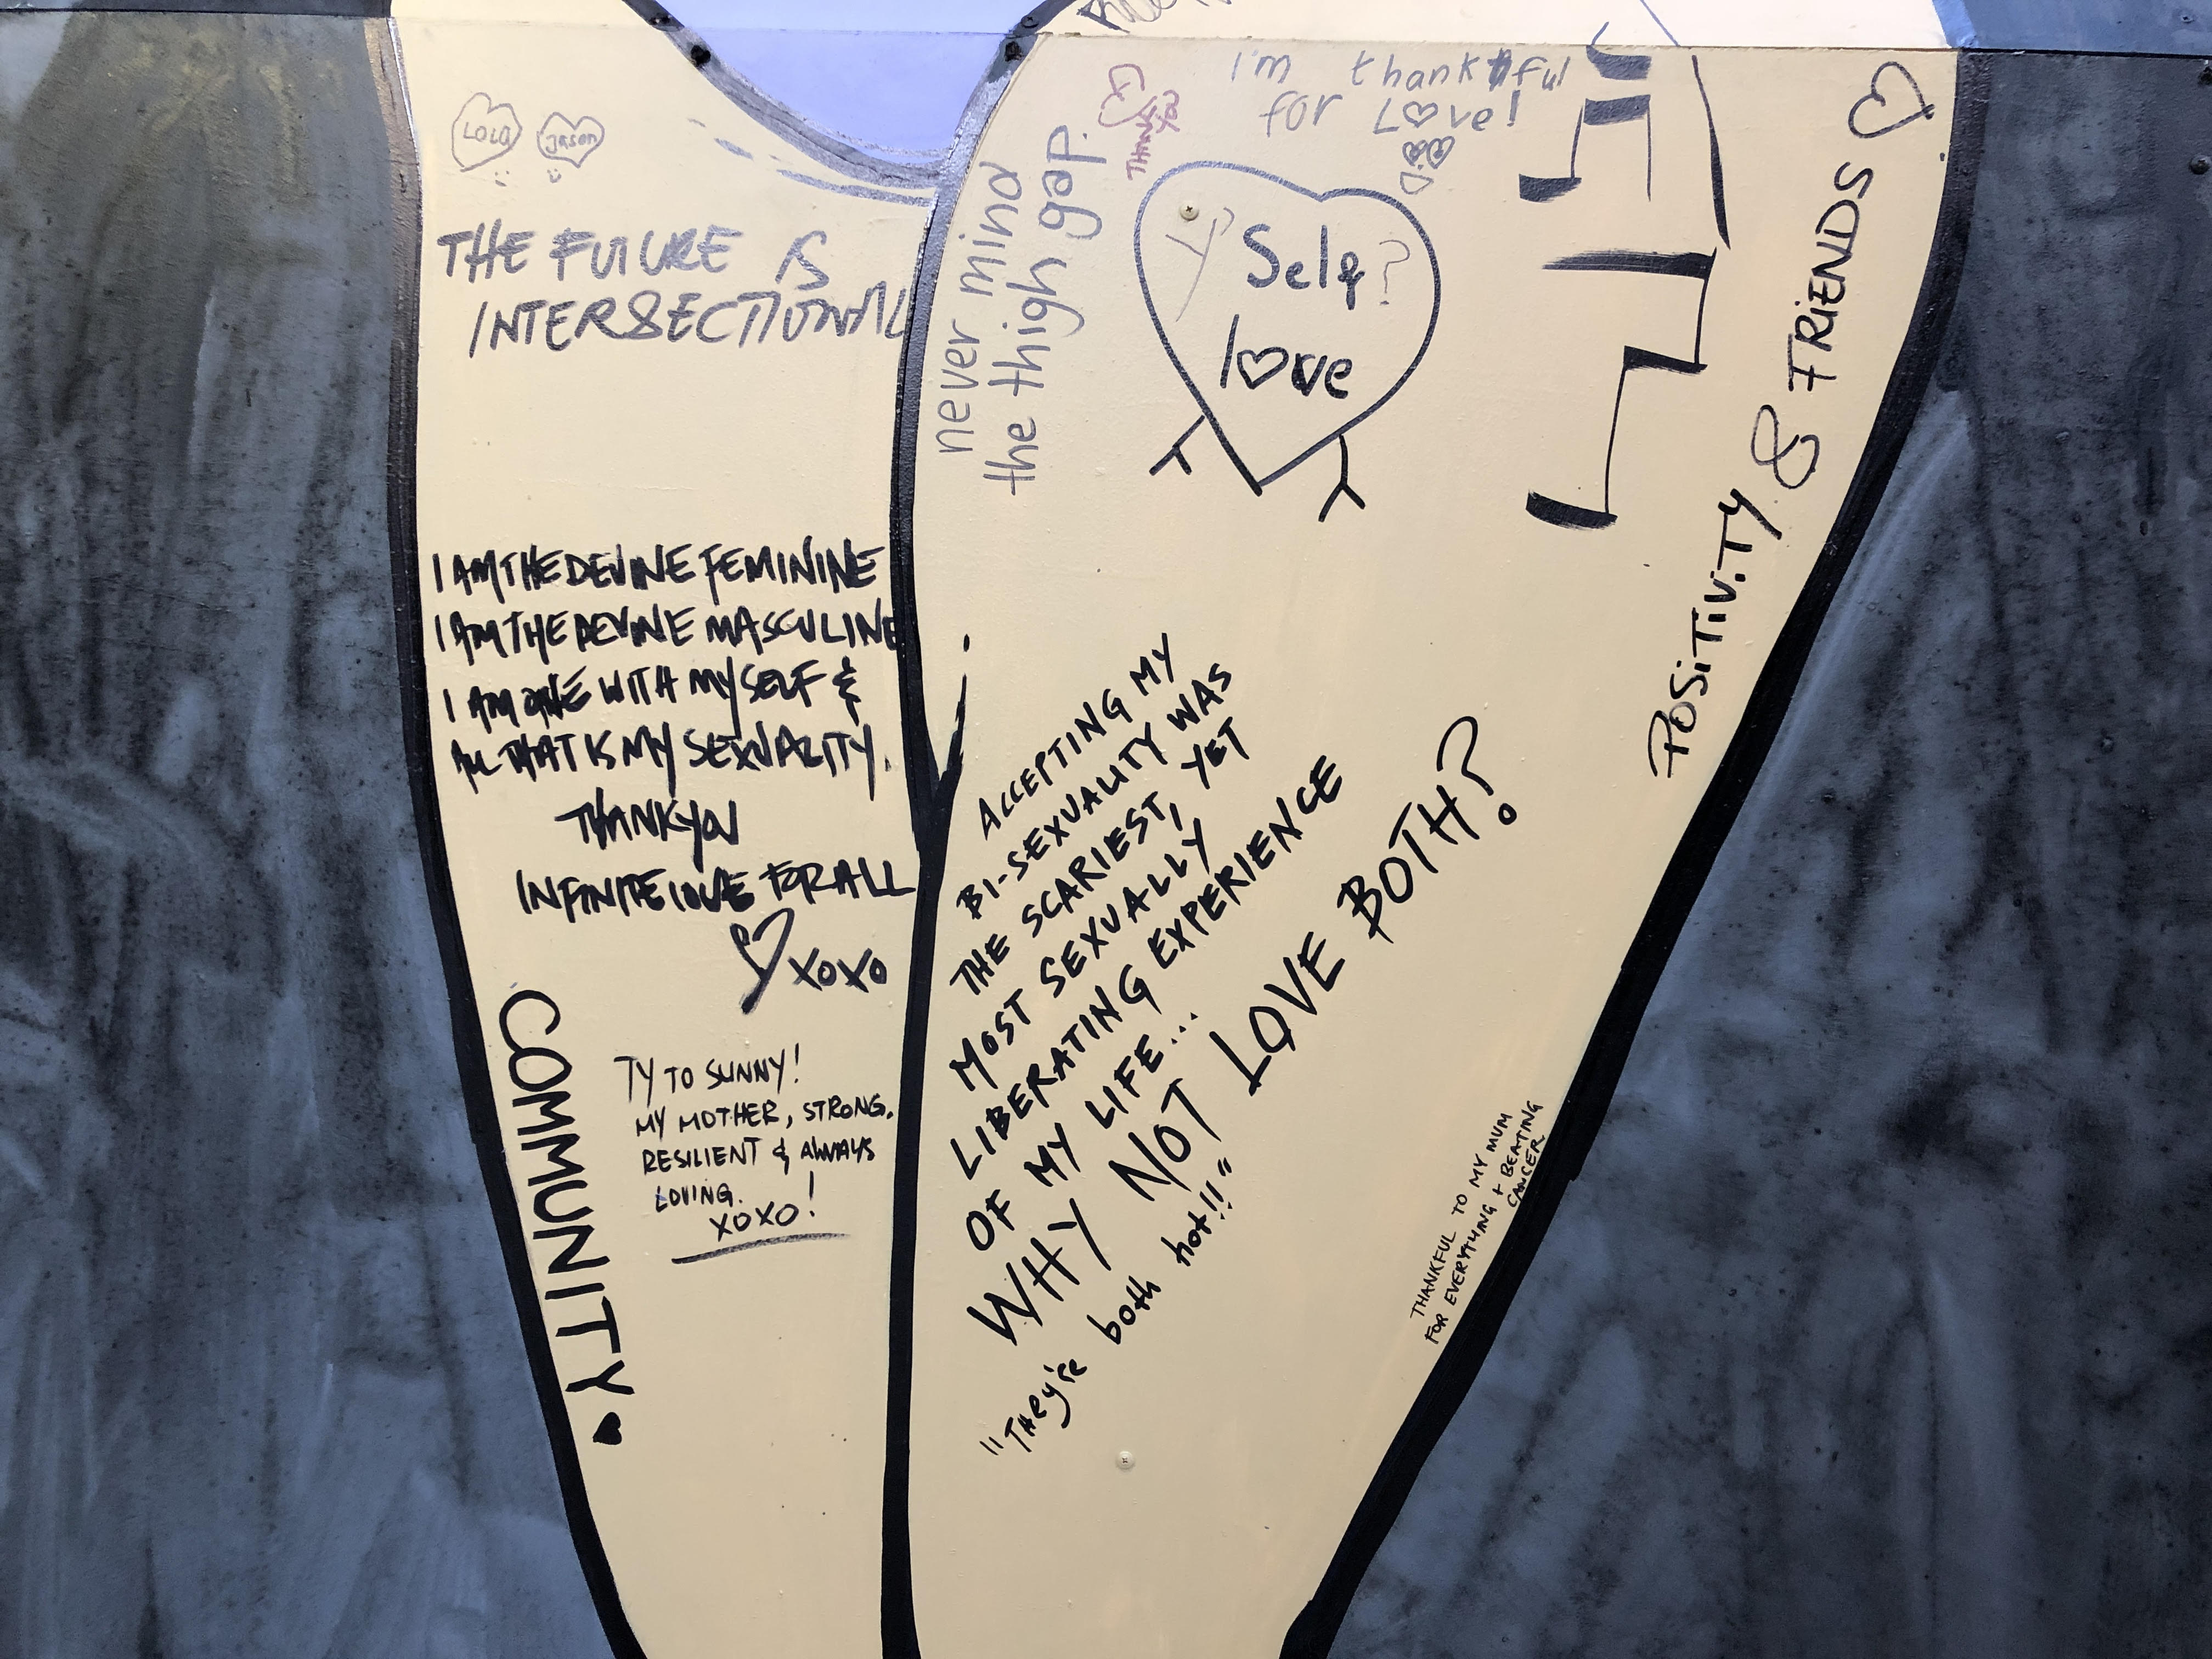 LOLA
Jason
THE FUTURE IS
INTERSECTIONAL
I AM THE DEVINE FEMININE
I AM THE DEVINE MASCULINE
I AM ONE WITH MYSELF &
ALL THAT IS MY SEXUALITY.
THANK YOU
INFINITE LOVE FOR ALL
XOXO
COMMUNITY
TY TO SUNNY!
MY MOTHER, STRONG,
RESILIENT & ALWAYS
LOVING.
XOXO!
never mind
the thigh gap.
THANK
YOU
I'm thankful
for Love!
Self
love
POSITIVITY & FRIENDS
ACCEPTING MY
BI-SEXUALITY WAS
THE SCARIEST, YET
MOST SEXUALLY
LIBERATING EXPERIENCE
OF MY LIFE...
WHY NOT LOVE BOTH?
"They're both hot!!"
THANKFUL TO MY MUM
FOR EVERYTHING + BEATING
CANCER